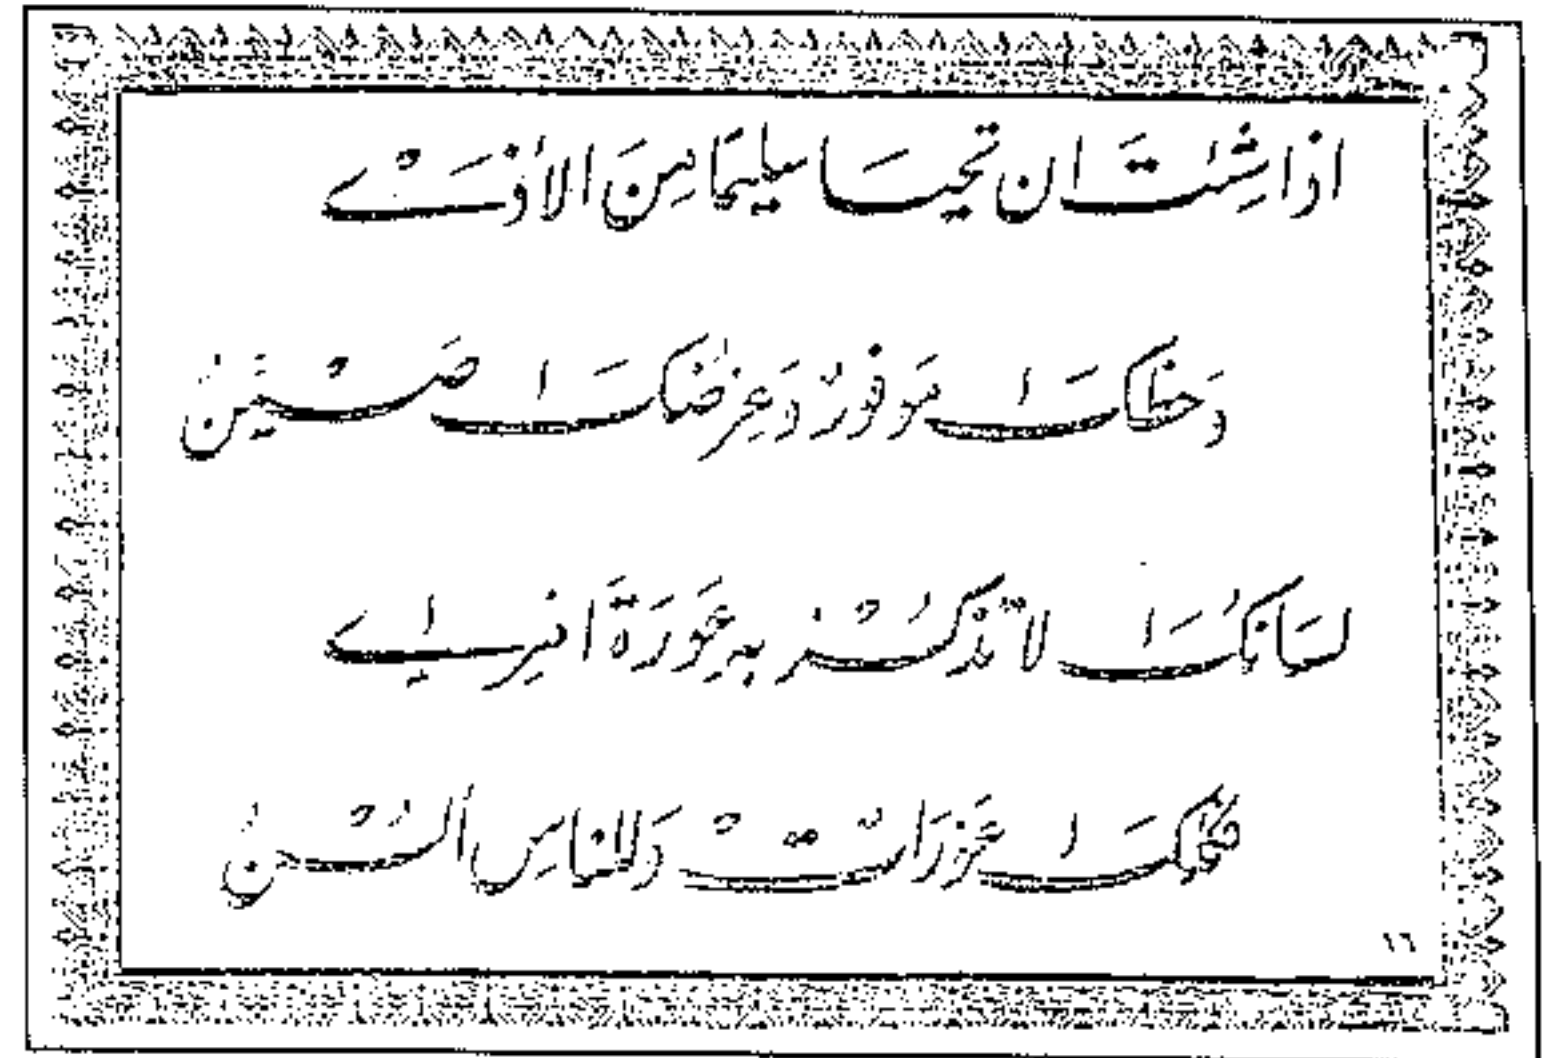 اذا شئت ان تحيا سليما من الأذى
وحظك موفور وعرضك صين
لسانك لا تذكر به عورة امرئ
فكلك عورات وللناس ألسن
١٦